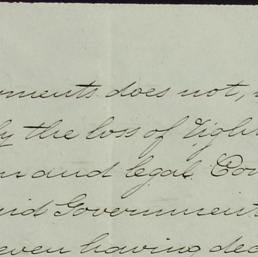 ornments does not,
by the loss of right
m and legal Cou
id Governments
even having dec